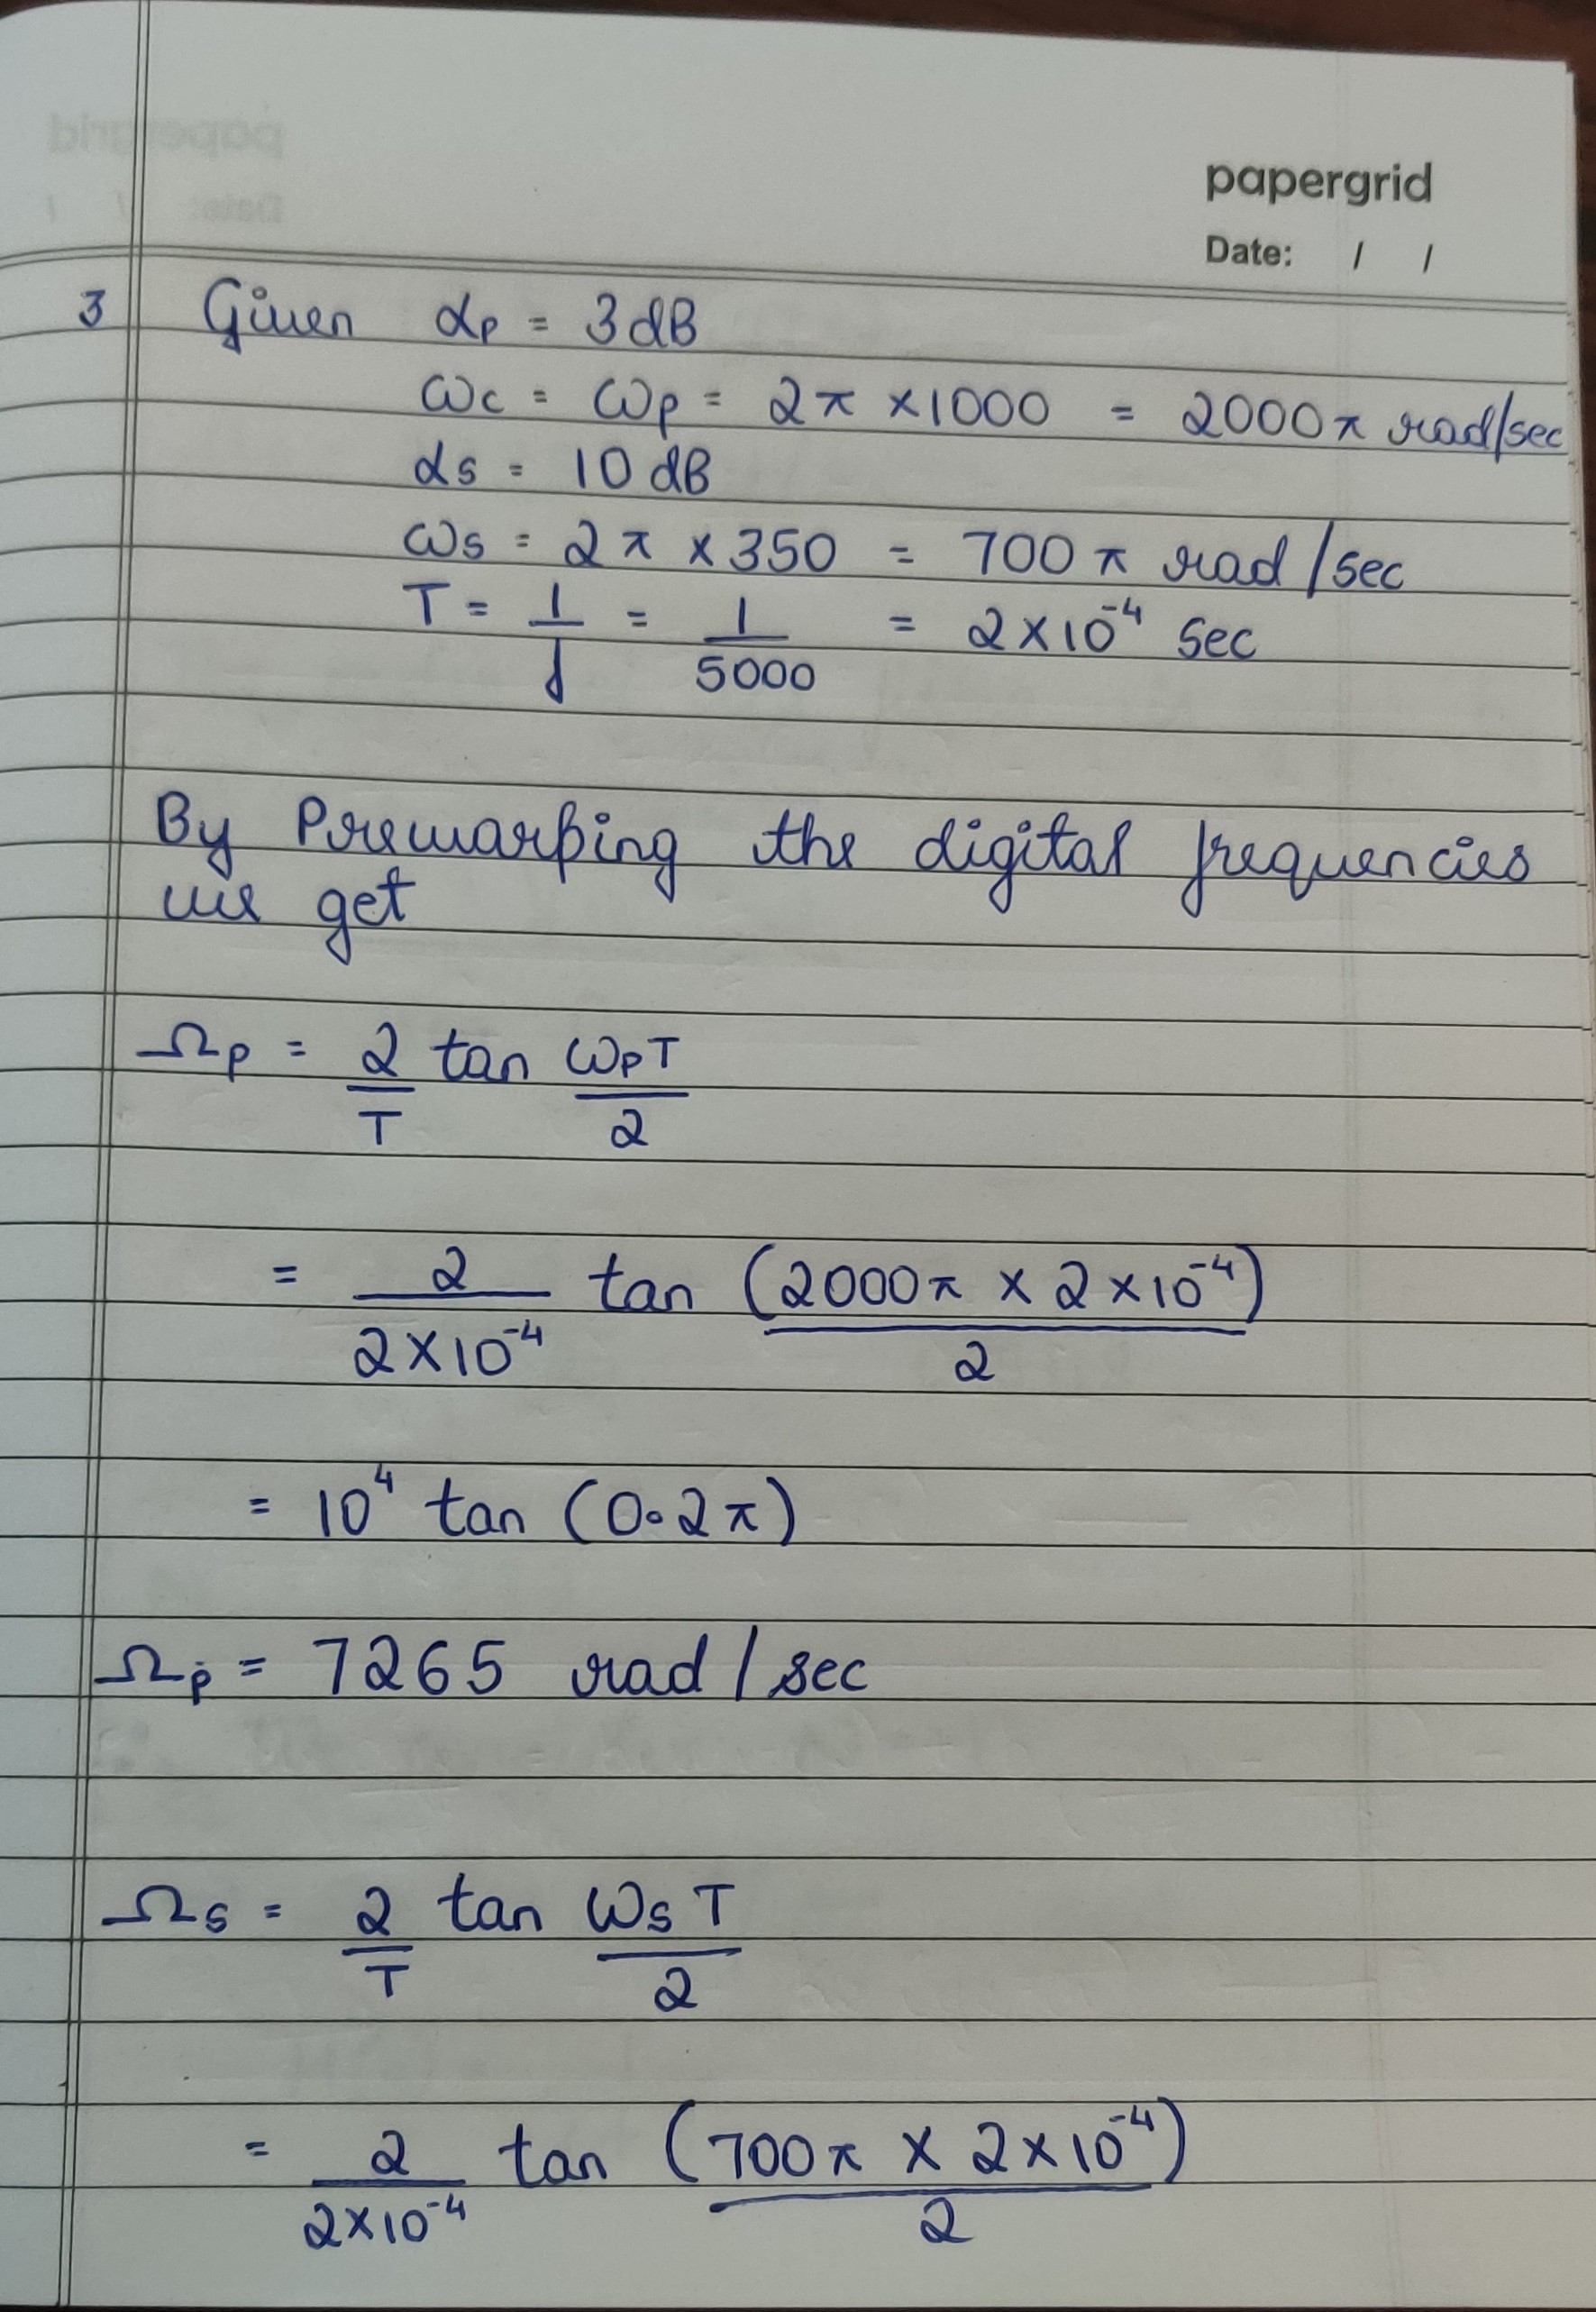 papergrid
Date: / /
3 Given αp = 3 dB
ωc = ωp = 2π × 1000 = 2000π rad/sec
αs = 10 dB
ωs = 2π × 350 = 700π rad/sec
T = 1/f = 1/5000 = 2×10⁻⁴ sec
By Prewarping the digital frequencies
we get
Ωp = 2/T tan ωpT/2
= 2/2×10⁻⁴ tan (2000π × 2×10⁻⁴)/2
= 10⁴ tan (0.2π)
Ωp = 7265 rad/sec
Ωs = 2/T tan ωsT/2
= 2/2×10⁻⁴ tan (700π × 2×10⁻⁴)/2